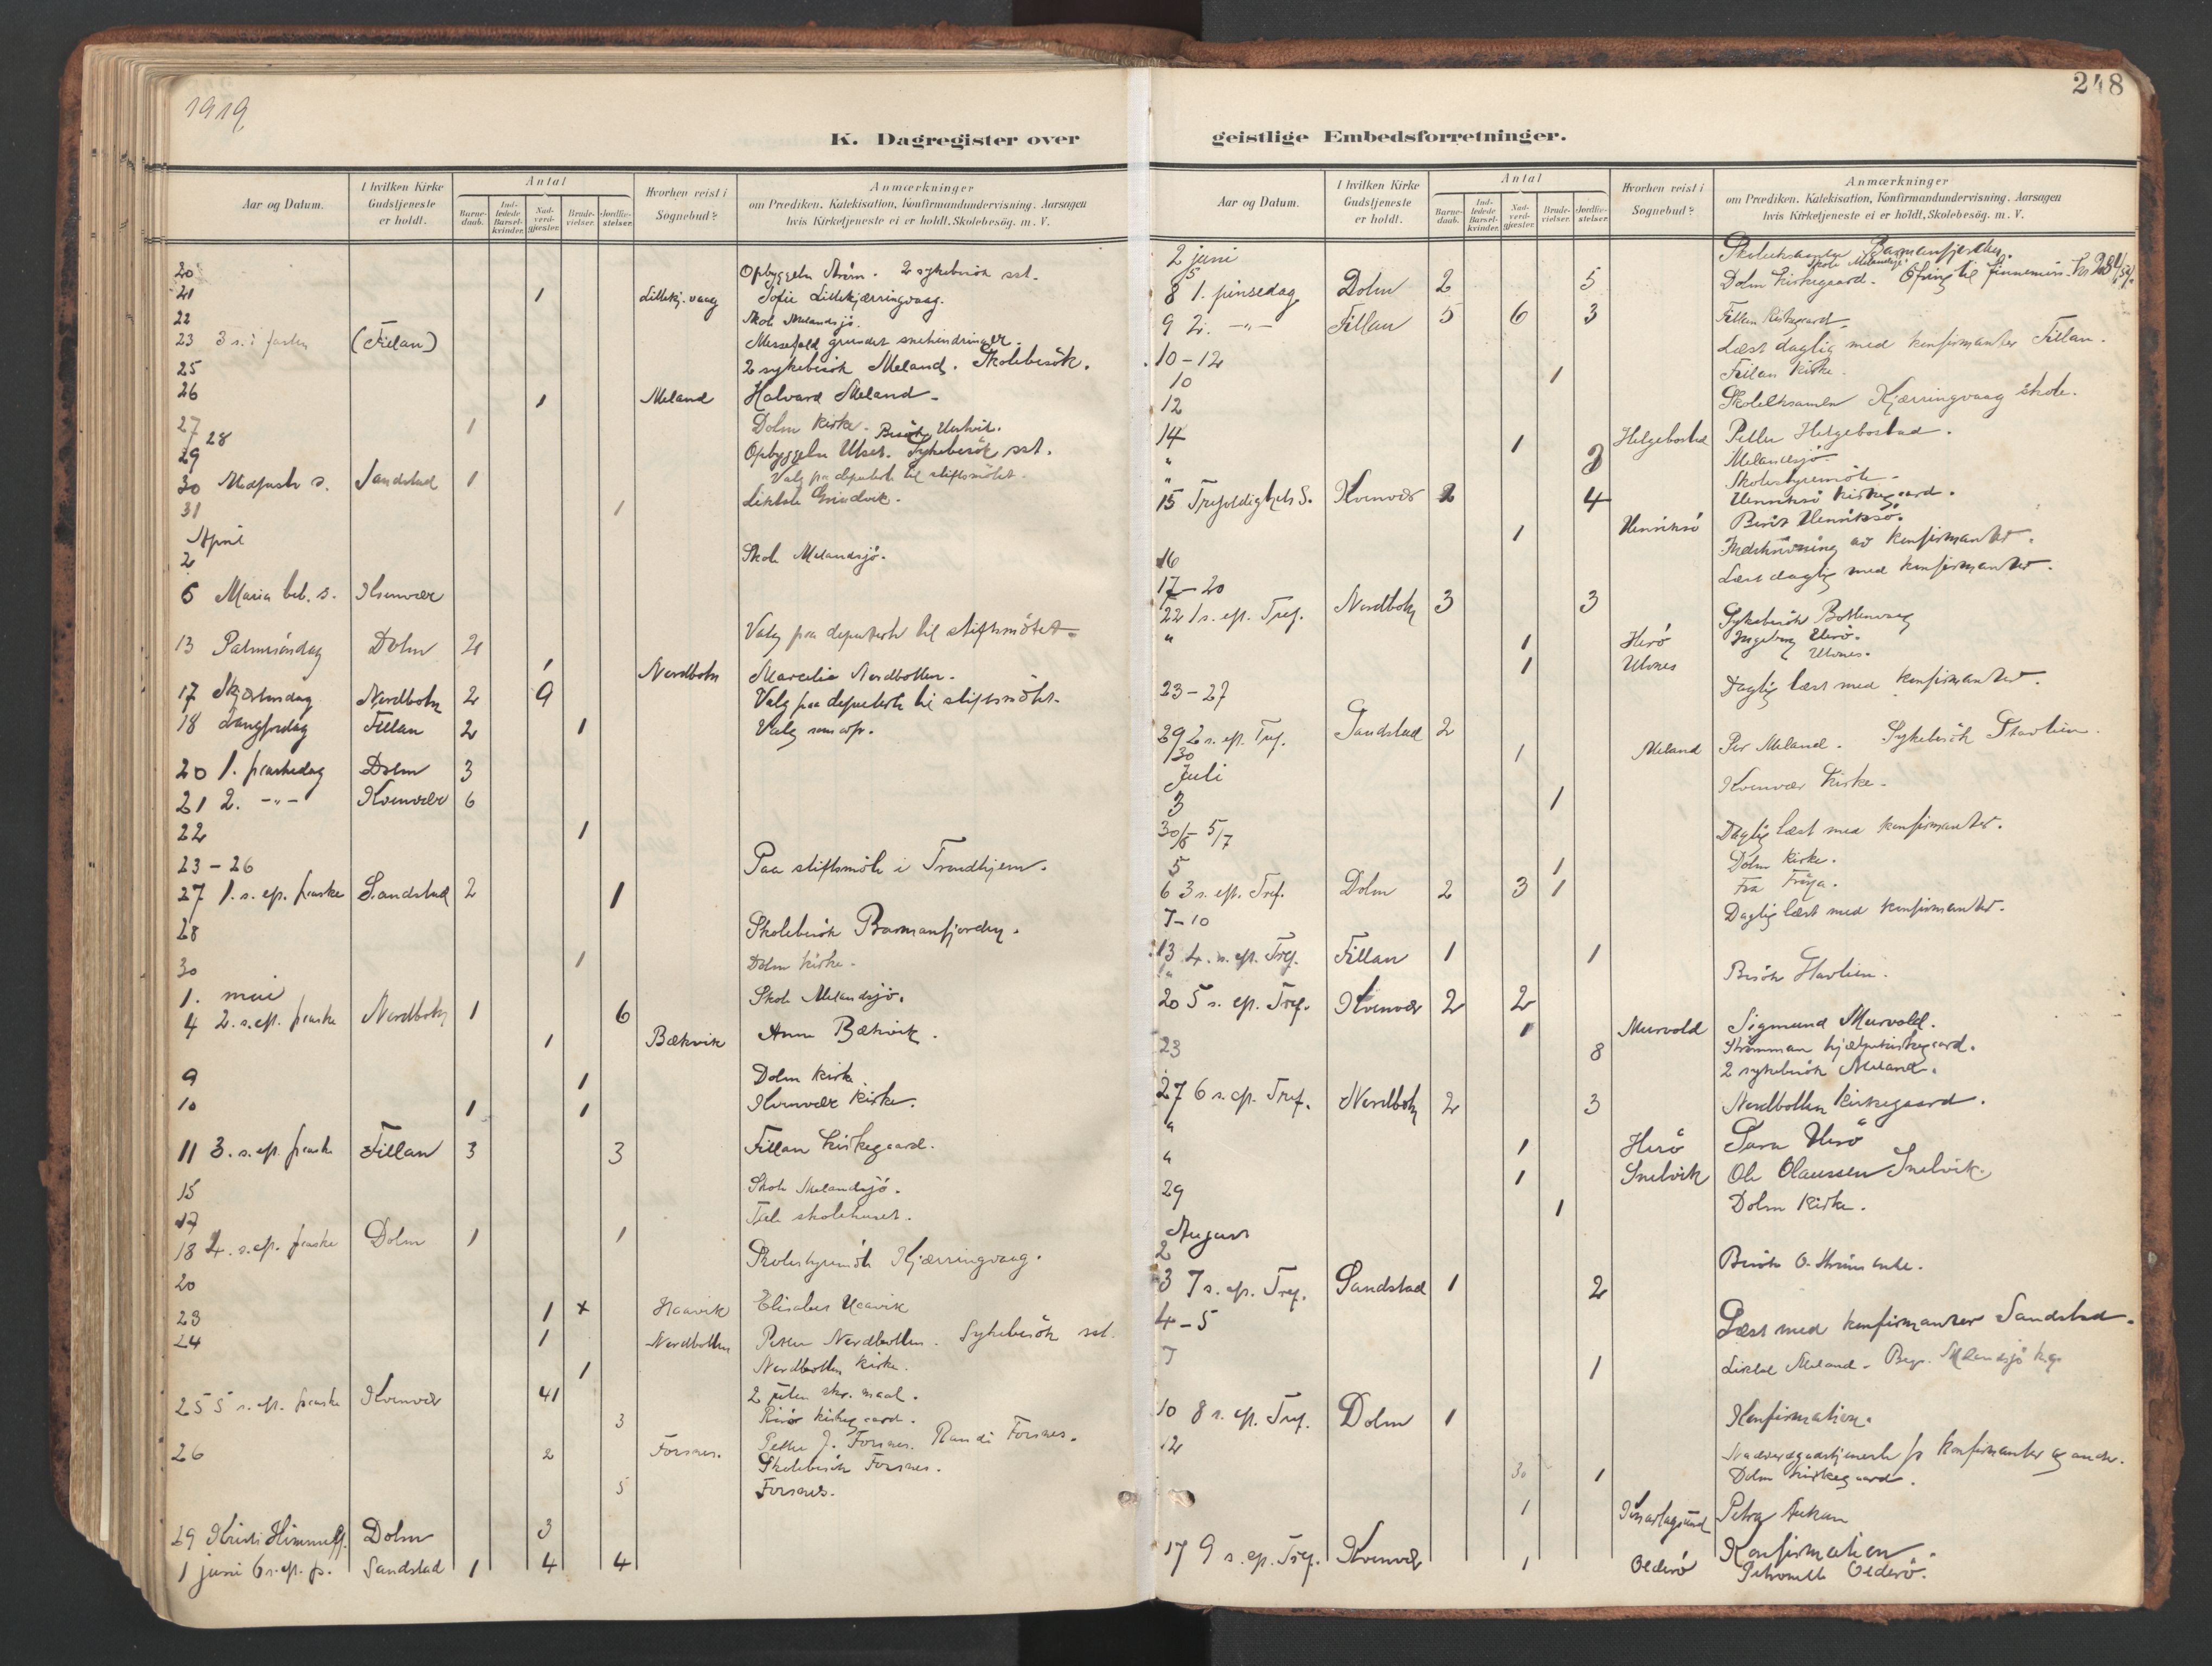 1919
248
K. Dagregister over
geistlige Embedsforretninger.
Aar og Datum.
I hvilken Kirke Gudstjeneste er holdt.
Antal
Barnedaab.
Indledede Barselkvinder.
Nadverdgjæster.
Brudevielser.
Jordfæstelser.
Hvorhen reist i Sognebud?
Anmærkninger
om Prædiken, Katekisation, Konfirmandundervisning. Aarsagen
hvis Kirketjeneste ei er holdt. Skolebesög. m. V.
20 Opbyggelse Strøm. 2 sykebesök sst.
21 1 Lillekj. vaag Sofie Lillekjærringvaag.
22 Skole Melandsjö.
23 3 s. i fasten (Fillan) Messefald grundet snehindringer.
25 2 sykebesök Meland. Skolebesök.
26 1 Meland Halvard Meland
27 1 Dolm kirke.
28
29 Opbyggelse Utset. Sykebesök sst.
30 Midfaste s. Sandstad 1 Valg paa deputerte til stiftsmötet.
31 1 Grindvik.
April
2 Skole Melandsjö.
6 Maria beb. s. Kvenvær
13 Palmesöndag Dolm 2 Valg paa deputerte til stiftsmötet
1 Nordbotn Marcelie Nordbotten.
17 Skjærtorsdag Nordbotn 2 9 Valg paa deputerte til stiftsmötet.
18 Langfredag Fillan 2 1 Valg som
20 1. paaskedag Dolm 3
21 2. -"- Kvenvær 6
22 1
23-26 Paa stiftsmöte i Trondhjem.
27 1. s. ep. paaske Sandstad 2 1
28 Skolebesök Barmanfjorden.
30 1 Dolm kirke.
1. mai Skole Melandsjö.
4 2. s. ep. paaske Nordbotn 1 6
1 Bækvik Anne Bækvik.
9 1 Dolm kirke
10 1 1 Kvenvær kirke.
11 3. s. ep. paaske Fillan 3 3 Fillan kirkegaard.
15 Skole Melandsjö.
17 skolehuset.
18 4. s. ep. paaske Dolm 1 1
20 Skolestyremöte Kjærringvaag.
23 1 x Haavik Elisabet Haavik
24 1 Nordbotten Petter Nordbotten. Sykebesök sst.
1 Nordbotten kirke.
25 5 s. ep. paaske Kvenvær 41
3 kirkegaard.
26 2 Forsnes. Petter J. Forsnes. Randi Forsnes.
Skolebesök Forsnes.
5 Forsnes.
29 Kristi Himmelf. Dolm 3
1 juni 6 s. ep. p. Sandstad 1 4 4
Aar og Datum.
I hvilken Kirke Gudstjeneste er holdt.
Antal
Barnedaab.
Indledede Barselkvinder.
Nadverdgjæster.
Brudevielser.
Jordfæstelser.
Hvorhen reist i Sognebud?
Anmærkninger
om Prædiken, Katekisation, Konfirmandundervisning. Aarsagen
hvis Kirketjeneste ei er holdt, Skolebesög. m. V.
2 juni Skoleeksamen Barmanfjorden.
5 Skole Melandsjö
8 1. pinsedag Dolm 2 5 Dolm kirkegaard. Ofring til finnemis.
9 2. -"- Fillan 5 6 3 Fillan kirkegaard
10-12 Læst daglig med konfirmanter Fillan.
10 1 Fillan kirke.
12 Skoleeksamen Kjærringvaag skole.
14 1 Helgebostad Petter Helgebostad.
" Melandsjö
" Skolestyremöte
15 Trefoldighets S. Kvenvær 2 4 Henriksö kirkegaard.
1 Henriksö Berit Henriksö.
16 Indskrivning av konfirmanter.
17-20 Læst daglig med konfirmanter.
22 1 s. ep. Tref. Nordbotn 3 3 Sykebesök
" 1 Herö Ingeborg Herö.
1 Ulvnes Ulvnes.
23-27 Daglig læst med konfirmanter.
29 2 s. ep. Tref. Sandstad 2
30 1 Meland Per Meland. Sykebesök
Juli
3 1 Kvenvær kirke.
30/6 - 5/7 Daglig læst med konfirmanter.
5 1 Dolm kirke.
6 3 s. ep. Tref. Dolm 2 3 1 Fra Fröya.
7-10 Daglig læst med konfirmanter.
13 4. s. ep. Tref. Fillan 1 1
Besök
20 5 s. ep. Tref. Kvenvær 2 2
1 Murvold Sigmund Murvold.
23 8 Strömman hjælpekirkegaard.
2 sykebesök Meland.
27 6 s. ep. Tref. Nordbotn 2 3 Nordbotten kirkegaard.
" 1 Herö Sara Herö
" 1 Snelvik Ole Olaussen Snelvik.
29 1 Dolm kirke.
August
2 Besök O.
3 7 s. ep. Tref. Sandstad 1 2
4-5 Læst med konfirmanter Sandstad.
7 1 Meland. Melandsjö
10 8 s. ep. Tref. Dolm 1 Konfirmation.
12 konfirmanter og andre.
30 1 Dolm kirkegaard.
1 Petra Aukan
17 9 s. ep. Tref. Kvenvær Konfirmation.
1 Olderö Petronelle Olderö.